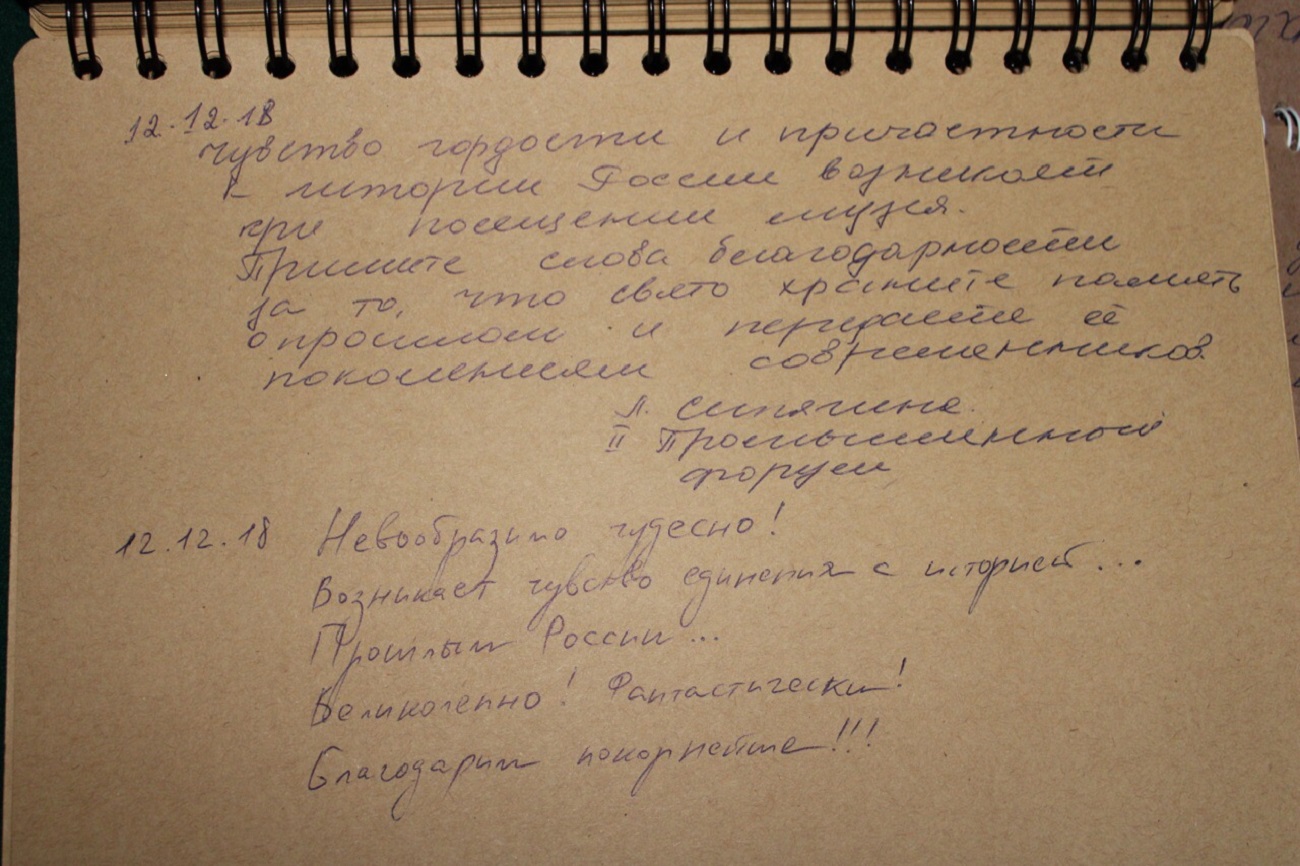 12.12.18
Чувство гордости и причастности
к истории России возникает
при посещении музея.
Примите слова благодарности
за то, что свято храните память
о прошлом и передаёте её
поколениям современников.
Л.
II Промышленный
форум
12.12.18 Невообразимо чудесно!
Возникает чувство единения с историей...
Прошлым России...
Великолепно! Фантастически!
Благодарим покорнейше!!!